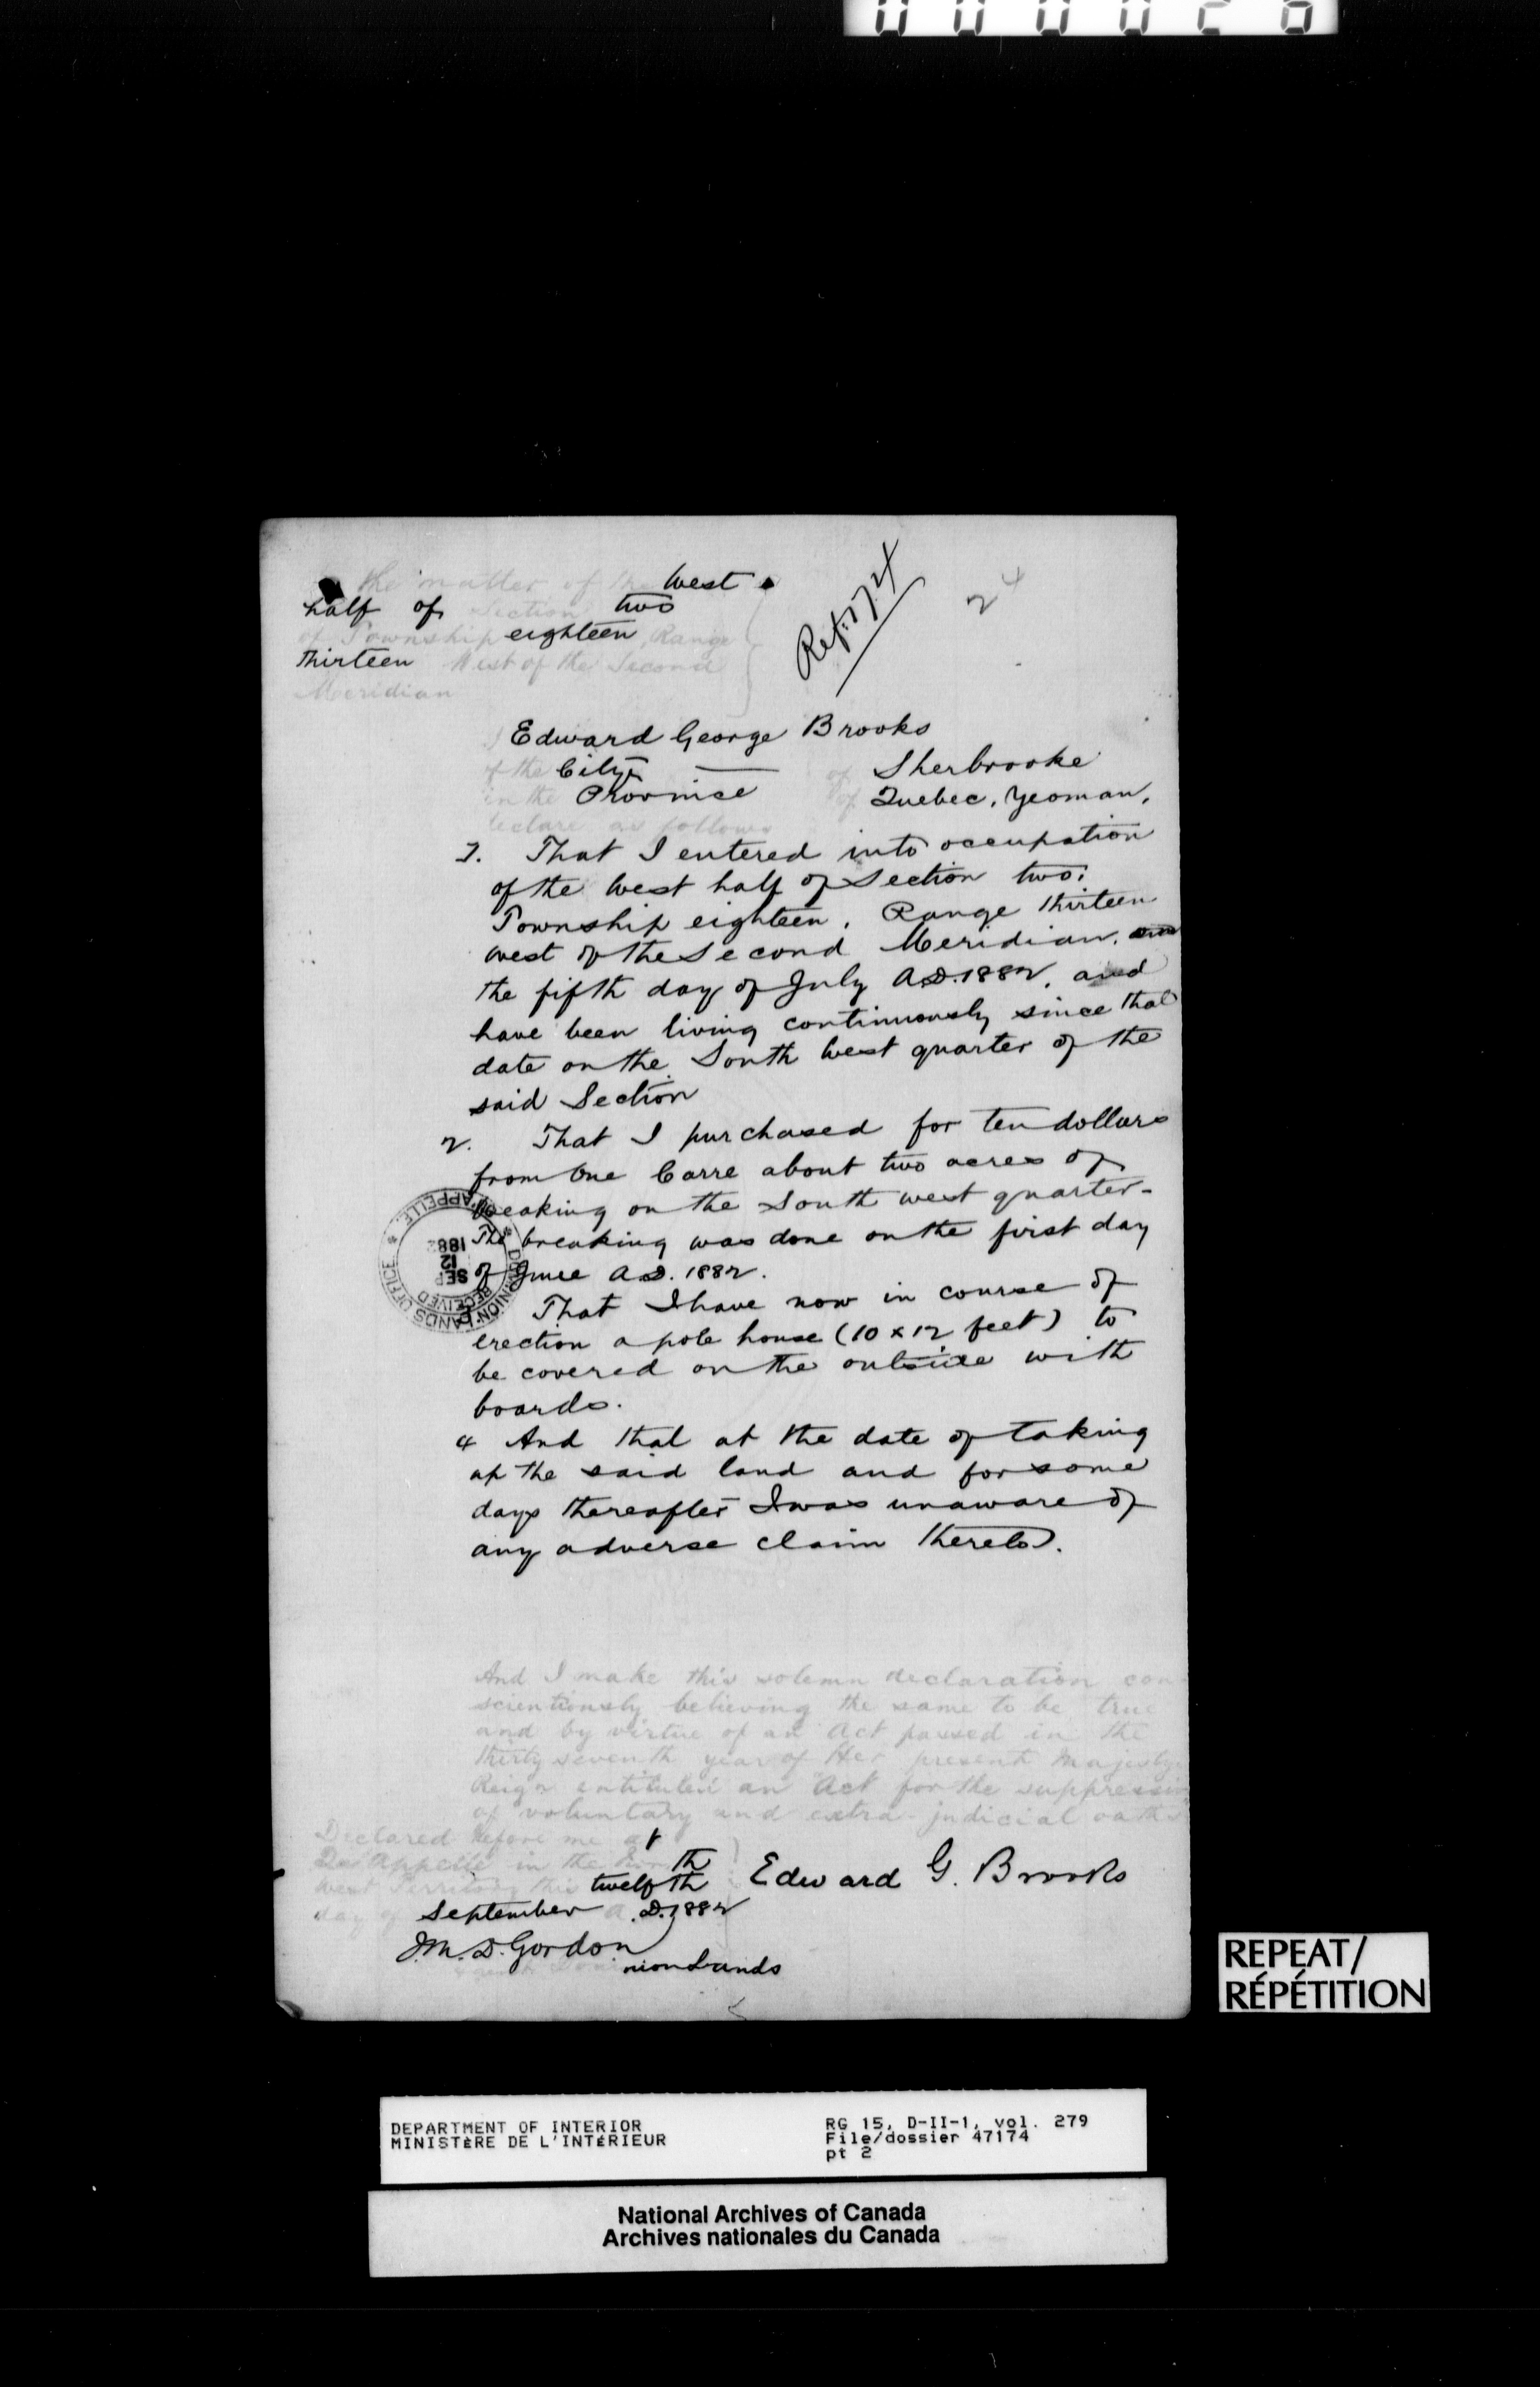 000026
Ref. 1724
24
the matter of the West
half of Section two
of Township eighteen, Range
thirteen West of the Second
Meridian
I Edward George Brooks
of the City of Sherbrooke
in the Province of Quebec, Yeoman,
declare as follows
1. That I entered into occupation
of the West half of Section two,
Township eighteen, Range thirteen
west of the Second Meridian, on
the fifth day of July A.D. 1882, and
have been living continuously since that
date on the South West quarter of the
said Section
2. That I purchased for ten dollars
from one Carre about two acres of
breaking on the South west quarter-
The breaking was done on the first day
of June A.D. 1882.
That I have now in course of
erection a pole house (10 x 12 feet) to
be covered on the outside with
boards.
4 And that at the date of taking
up the said land and for some
days thereafter I was unaware of
any adverse claim thereto.
DOMINION LANDS OFFICE
RECEIVED
SEP
12
1882
QU'APPELLE.
And I make this solemn declaration con
scientiously believing the same to be true
and by virtue of an Act passed in the
thirty seventh year of Her present Majesty's
Reign entituled an "Act for the suppression
of voluntary and extra-judicial oaths
Declared before me at
Qu'Appelle in the North
West Territory this twelfth
day of September A.D. 1882
Edward G. Brooks
J.M. D. Gordon
Agent Dominion Lands
REPEAT/
RÉPÉTITION
DEPARTMENT OF INTERIOR
MINISTÈRE DE L'INTÉRIEUR
RG 15, D-II-1, vol. 279
File/dossier 47174
pt 2
National Archives of Canada
Archives nationales du Canada